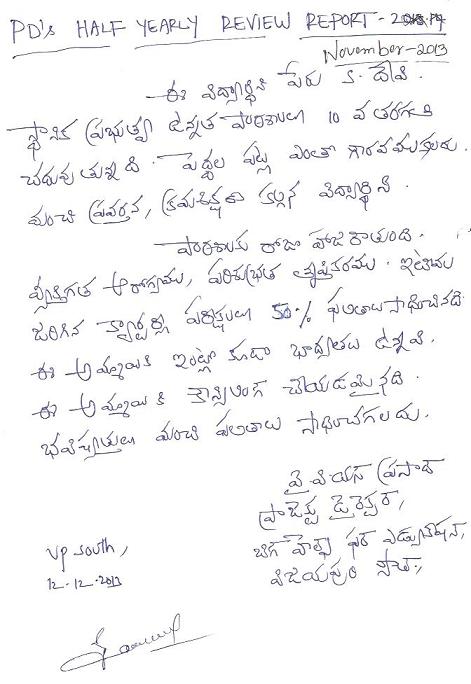 PD's HALF YEARLY REVIEW REPORT - 2013-14
November-2013
ఈ విద్యార్థిని పేరు కె. దేవి.
స్థానిక ప్రభుత్వ ఉన్నత పాఠశాలలో 10 వ తరగతి
చదువుతున్నది. పెద్దల పట్ల ఎంతో గౌరవముకలదు.
మంచి ప్రవర్తన, క్రమశిక్షణ కల్గిన విద్యార్థిని.
పాఠశాలకు రోజూ హాజరౌతుంది.
వ్యక్తిగత ఆరోగ్యము, పరిశుభ్రత తృప్తికరము. ఇటీవల
జరిగిన క్వార్టర్లీ పరీక్షలలో 50% ఫలితాలు సాధించినది.
ఈ అమ్మాయికి ఇంట్లో కూడా బాధ్యతలు ఉన్నవి.
ఈ అమ్మాయికి కౌన్సిలింగ్ చేయడమైనది.
భవిష్యత్తులో మంచి ఫలితాలు సాధించగలదు.
వై వియస్ ప్రసాద్
ప్రాజెక్టు డైరెక్టర్,
బిగ్ హెల్ప్ ఫర్ ఎడ్యుకేషన్,
విజయపురం సౌత్.
VP South,
12-12-2013